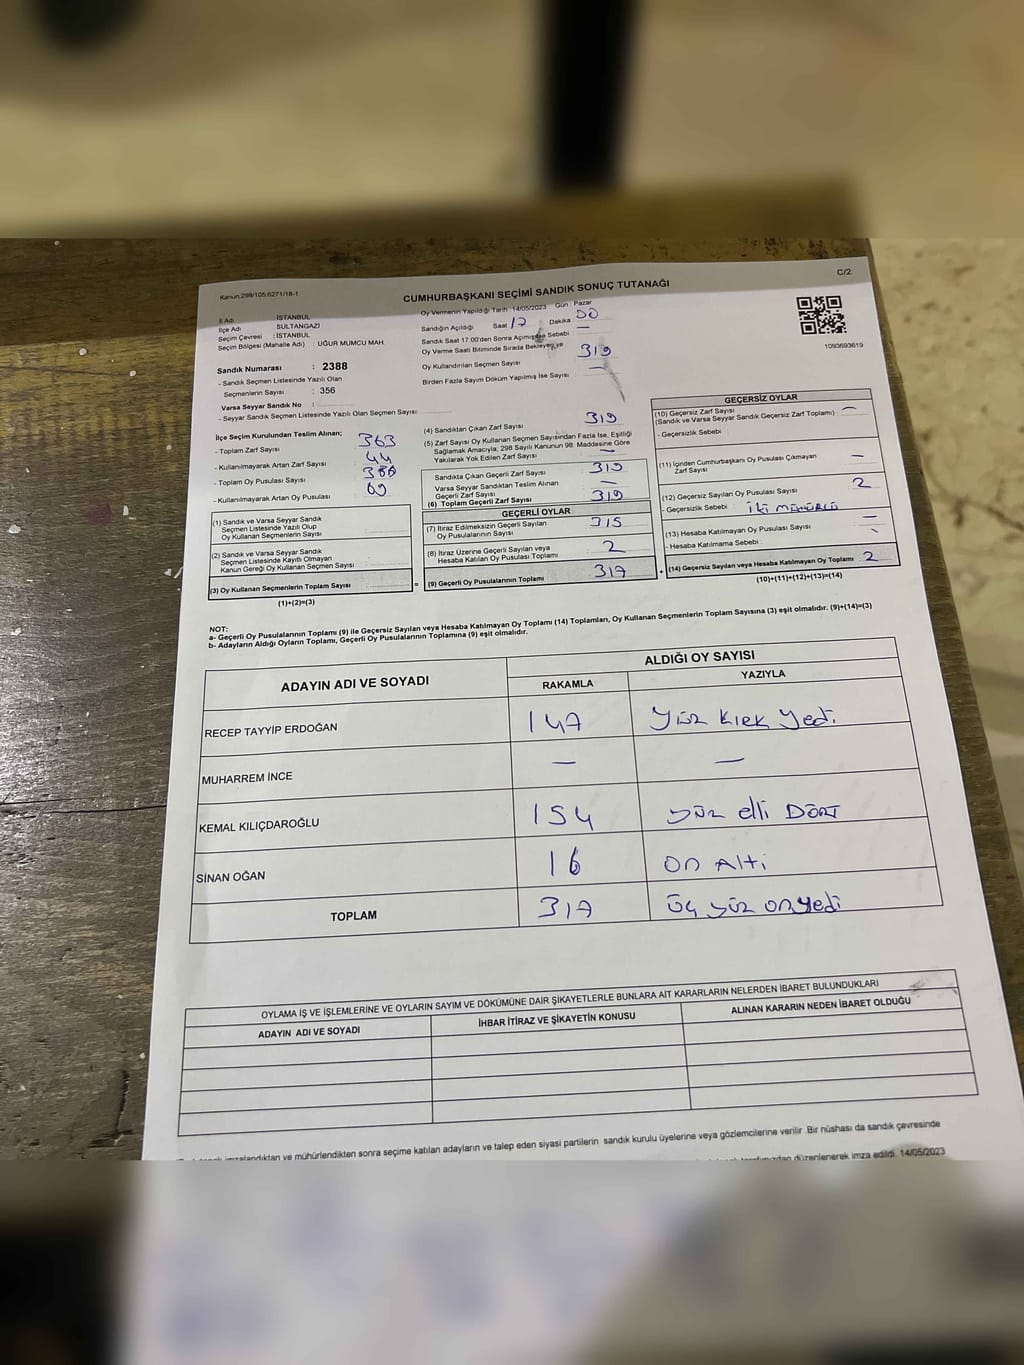 Kanun;298/105;6271/18-1
C/2
CUMHURBAŞKANI SEÇİMİ SANDIK SONUÇ TUTANAĞI
İl Adı : İSTANBUL
İlçe Adı SULTANGAZI
Seçim Çevresi : İSTANBUL
Seçim Bölgesi (Mahalle Adı) : UĞUR MUMCU MAH.
Sandık Numarası : 2388
- Sandık Seçmen Listesinde Yazılı Olan
Seçmenlerin Sayısı : 356
Varsa Seyyar Sandık No :
- Seyyar Sandık Seçmen Listesinde Yazılı Olan Seçmen Sayısı
Oy Vermenin Yapıldığı Tarih : 14/05/2023 Gün : Pazar
Sandığın Açıldığı Saat 17 Dakika 00
Sandık Saat 17.00'den Sonra Açılmışsa Sebebi : —
Oy Verme Saati Bitiminde Sırada Bekleyen ve
Oy Kullandırılan Seçmen Sayısı 319
Birden Fazla Sayım Döküm Yapılmış İse Sayısı —
1093693619
İlçe Seçim Kurulundan Teslim Alınan;
- Toplam Zarf Sayısı 363
- Kullanılmayarak Artan Zarf Sayısı 44
- Toplam Oy Pusulası Sayısı
- Kullanılmayarak Artan Oy Pusulası 69
(1) Sandık ve Varsa Seyyar Sandık
Seçmen Listesinde Yazılı Olup
Oy Kullanan Seçmenlerin Sayısı
(2) Sandık ve Varsa Seyyar Sandık
Seçmen Listesinde Kayıtlı Olmayan
Kanun Gereği Oy Kullanan Seçmen Sayısı
(3) Oy Kullanan Seçmenlerin Toplam Sayısı =
(1)+(2)=(3)
(4) Sandıktan Çıkan Zarf Sayısı 319
(5) Zarf Sayısı Oy Kullanan Seçmen Sayısından Fazla İse, Eşitliği
Sağlamak Amacıyla, 298 Sayılı Kanunun 98. Maddesine Göre
Yakılarak Yok Edilen Zarf Sayısı —
Sandıkta Çıkan Geçerli Zarf Sayısı 319
Varsa Seyyar Sandıktan Teslim Alınan
Geçerli Zarf Sayısı —
(6) Toplam Geçerli Zarf Sayısı 319
GEÇERLİ OYLAR
(7) İtiraz Edilmeksizin Geçerli Sayılan
Oy Pusulalarının Sayısı 315
(8) İtiraz Üzerine Geçerli Sayılan veya
Hesaba Katılan Oy Pusulası Toplamı 2
(9) Geçerli Oy Pusulalarının Toplamı 317 +
GEÇERSİZ OYLAR
(10) Geçersiz Zarf Sayısı —
(Sandık ve Varsa Seyyar Sandık Geçersiz Zarf Toplamı) :
- Geçersizlik Sebebi
(11) İçinden Cumhurbaşkanı Oy Pusulası Çıkmayan
Zarf Sayısı —
(12) Geçersiz Sayılan Oy Pusulası Sayısı 2
- Geçersizlik Sebebi : İki MÜHÜRLÜ
(13) Hesaba Katılmayan Oy Pusulası Sayısı —
- Hesaba Katılmama Sebebi :
(14) Geçersiz Sayılan veya Hesaba Katılmayan Oy Toplamı 2
(10)+(11)+(12)+(13)=(14)
NOT:
a- Geçerli Oy Pusulalarının Toplamı (9) ile Geçersiz Sayılan veya Hesaba Katılmayan Oy Toplamı (14) Toplamları, Oy Kullanan Seçmenlerin Toplam Sayısına (3) eşit olmalıdır. (9)+(14)=(3)
b- Adayların Aldığı Oyların Toplamı, Geçerli Oy Pusulalarının Toplamına (9) eşit olmalıdır.
ADAYIN ADI VE SOYADI
ALDIĞI OY SAYISI
RAKAMLA YAZIYLA
RECEP TAYYİP ERDOĞAN 147 Yüz kırk Yedi
MUHARREM İNCE — —
KEMAL KILIÇDAROĞLU 154 yüz elli DÖRT
SİNAN OĞAN 16 On Altı
TOPLAM 317 üç yüz onyedi
OYLAMA İŞ VE İŞLEMLERİNE VE OYLARIN SAYIM VE DÖKÜMÜNE DAİR ŞİKAYETLERLE BUNLARA AİT KARARLARIN NELERDEN İBARET BULUNDUKLARI
ADAYIN ADI VE SOYADI İHBAR İTİRAZ VE ŞİKAYETİN KONUSU ALINAN KARARIN NEDEN İBARET OLDUĞU
imzalandıktan ve mühürlendikten sonra seçime katılan adayların ve talep eden siyasi partilerin sandık kurulu üyelerine veya gözlemcilerine verilir. Bir nüshası da sandık çevresinde
tarafımızdan düzenlenerek imza edildi. 14/05/2023